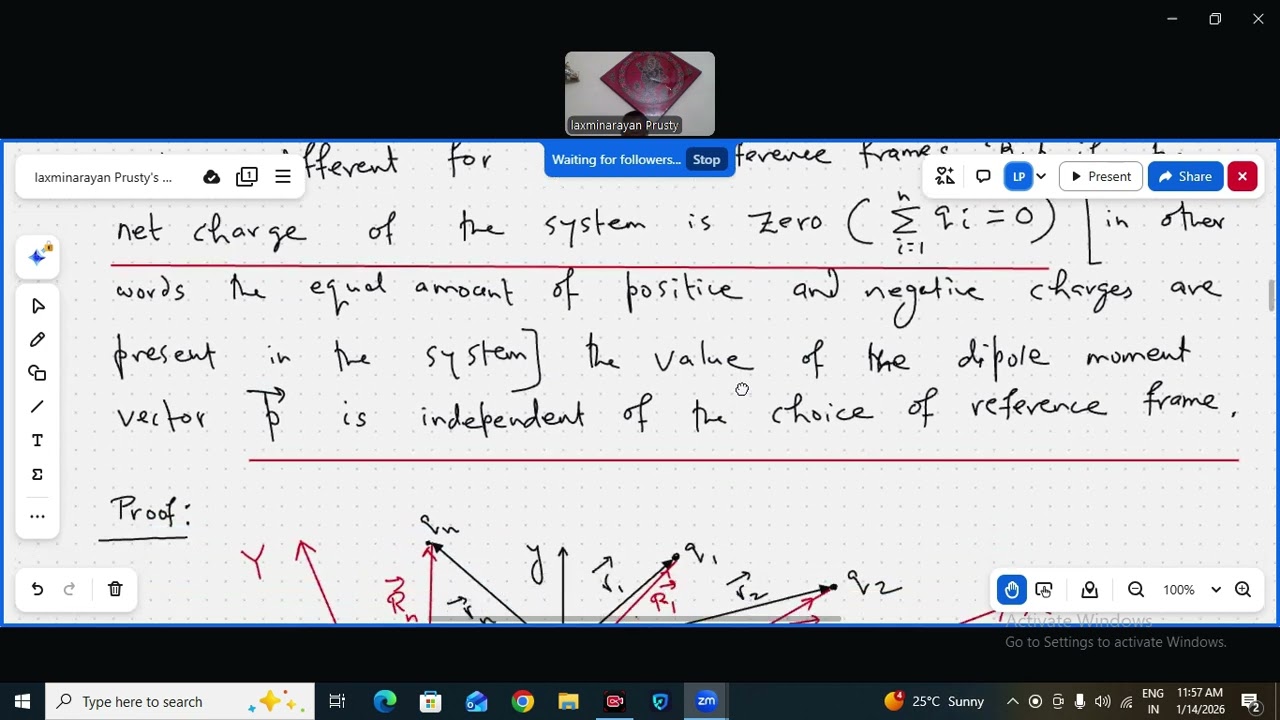 laxminarayan Prusty
Waiting for followers... Stop
laxminarayan Prusty's ...
LP
Present
Share
different for reference frames. But if the
net charge of the system is zero ( n Σ i=1 qi = 0 ) [ in other
words the equal amount of positive and negative charges are
present in the system ] the value of the dipole moment
vector p⃗ is independent of the choice of reference frame.
Proof:
Y qn y r⃗1 q1 r⃗2 q2
R⃗n r⃗n R⃗1
100%
Activate Windows
Go to Settings to activate Windows.
Type here to search
zm
4 25°C Sunny
ENG
IN
11:57 AM
1/14/2026
2